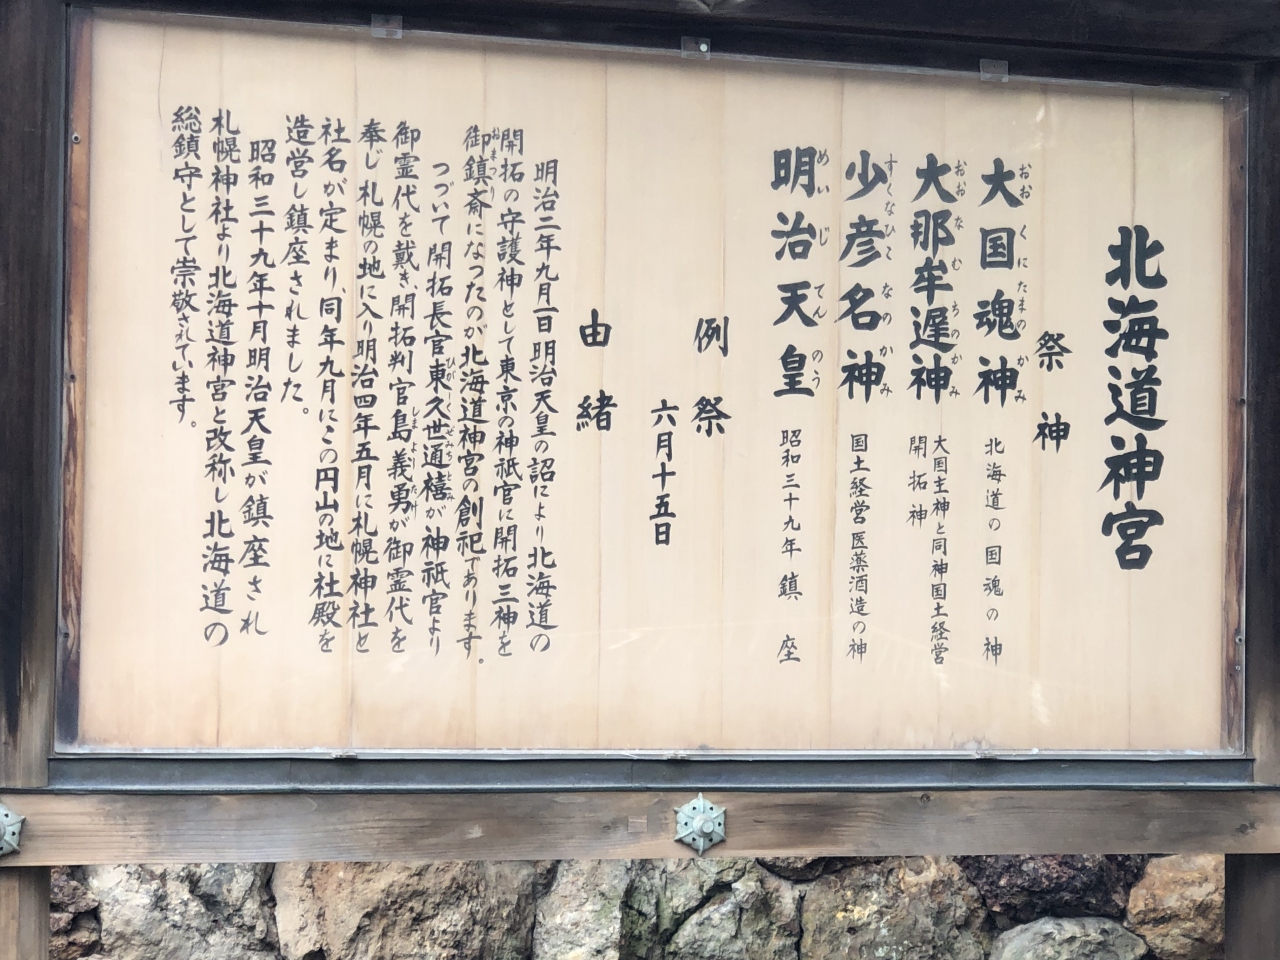 北海道神宮
祭神
大国魂神 北海道の国魂の神
おおくにたまのかみ
大那牟遅神 大国主神と同神国土経営
開拓神
おおなむちのかみ
少彦名神 国土経営医薬酒造の神
すくなひこなのかみ
明治天皇 昭和三十九年鎮座
めいじてんのう
例祭
六月十五日
由緒
明治二年九月一日明治天皇の詔により北海道の
開拓の守護神として東京の神祇官に開拓三神を
御鎮斎になつたのが北海道神宮の創祀であります。
おまつり
つづいて開拓長官東久世通禧が神祇官より
ひがしくぜみちとみ
御霊代を戴き、開拓判官島義勇が御霊代を
しまよしたけ
奉じ札幌の地に入り明治四年五月に札幌神社と
社名が定まり、同年九月にこの円山の地に社殿を
造営し鎮座されました。
昭和三十九年十月明治天皇が鎮座され
札幌神社より北海道神宮と改称し北海道の
総鎮守として崇敬されています。